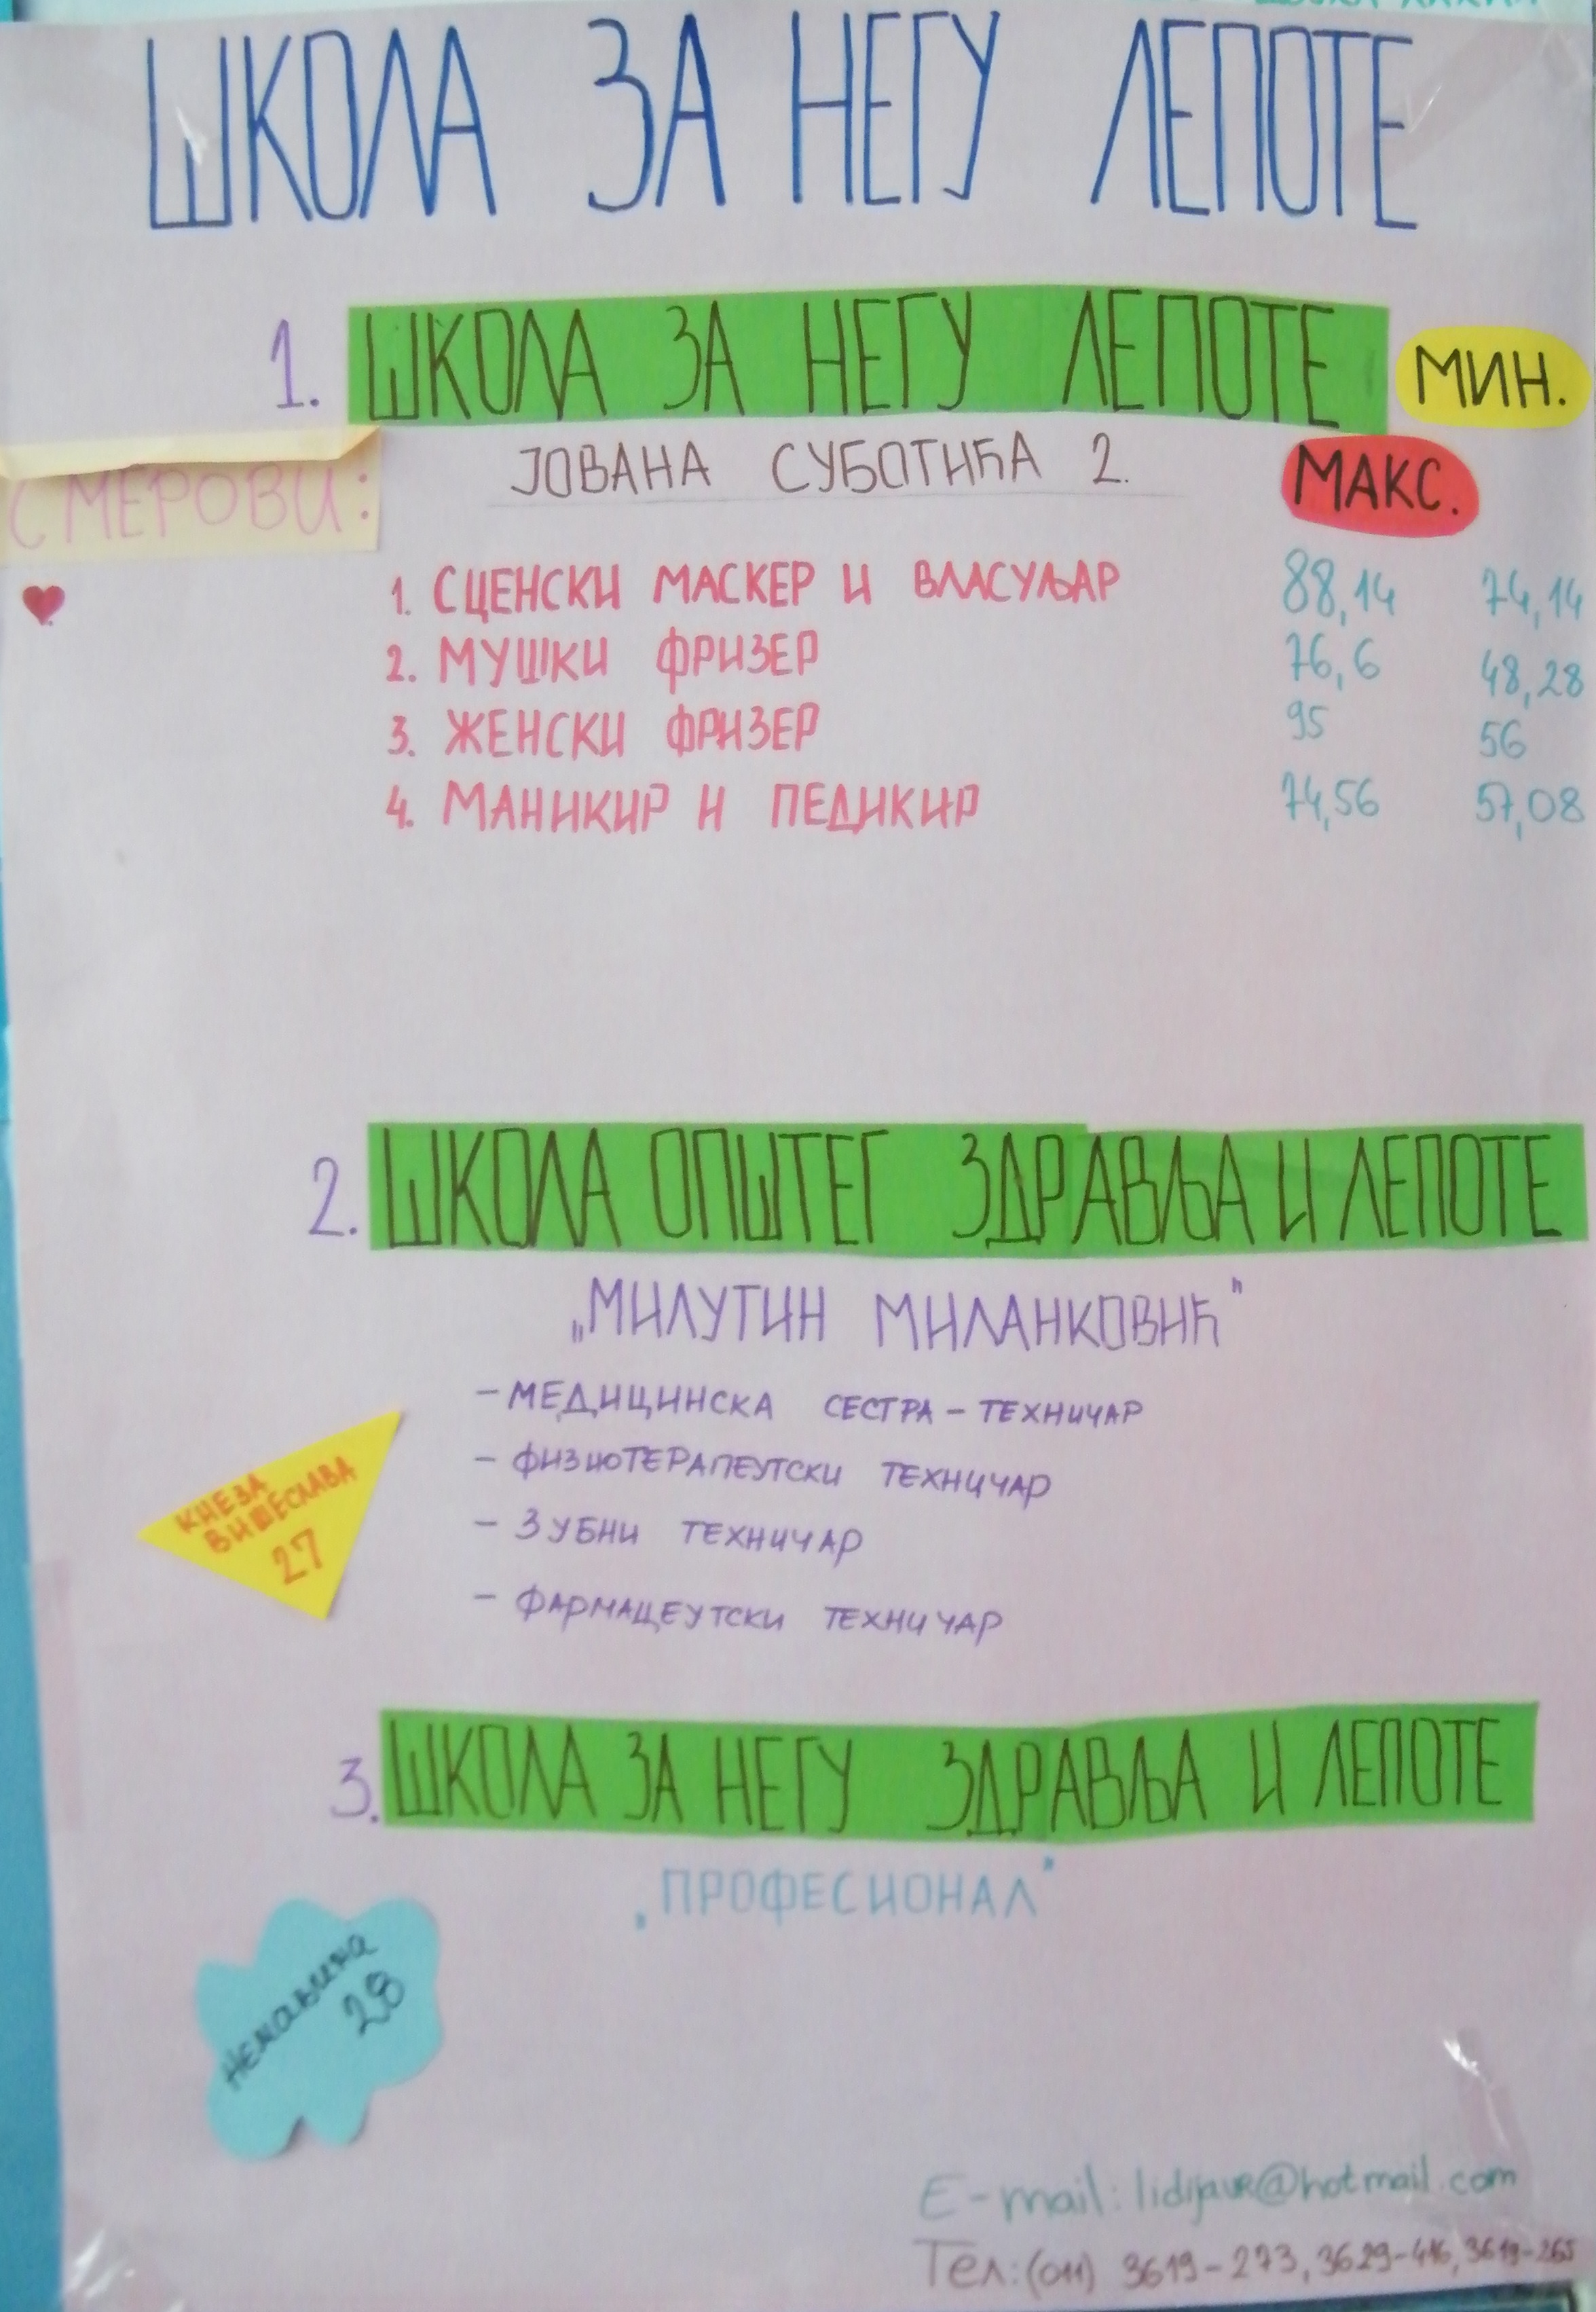 ШКОЛА ЗА НЕГУ ЛЕПОТЕ
1. ШКОЛА ЗА НЕГУ ЛЕПОТЕ МИН.
ЈОВАНА СУБОТИЋА 2. МАКС.
СМЕРОВИ:
1. СЦЕНСКИ МАСКЕР И ВЛАСУЉАР 88,14 74,14
2. МУШКИ ФРИЗЕР 76,6 48,28
3. ЖЕНСКИ ФРИЗЕР 95 56
4. МАНИКИР И ПЕДИКИР 74,56 57,08
2. ШКОЛА ОПШТЕГ ЗДРАВЉА И ЛЕПОТЕ
„МИЛУТИН МИЛАНКОВИЋ"
- МЕДИЦИНСКА СЕСТРА - ТЕХНИЧАР
- ФИЗИОТЕРАПЕУТСКИ ТЕХНИЧАР
- ЗУБНИ ТЕХНИЧАР
- ФАРМАЦЕУТСКИ ТЕХНИЧАР
КНЕЗА
ВИШЕСЛАВА
27
3. ШКОЛА ЗА НЕГУ ЗДРАВЉА И ЛЕПОТЕ
„ПРОФЕСИОНАЛ"
Немањина
28
E-mail: lidijavr@hotmail.com
Тел: (011) 3619-273, 3629-416, 3619-265